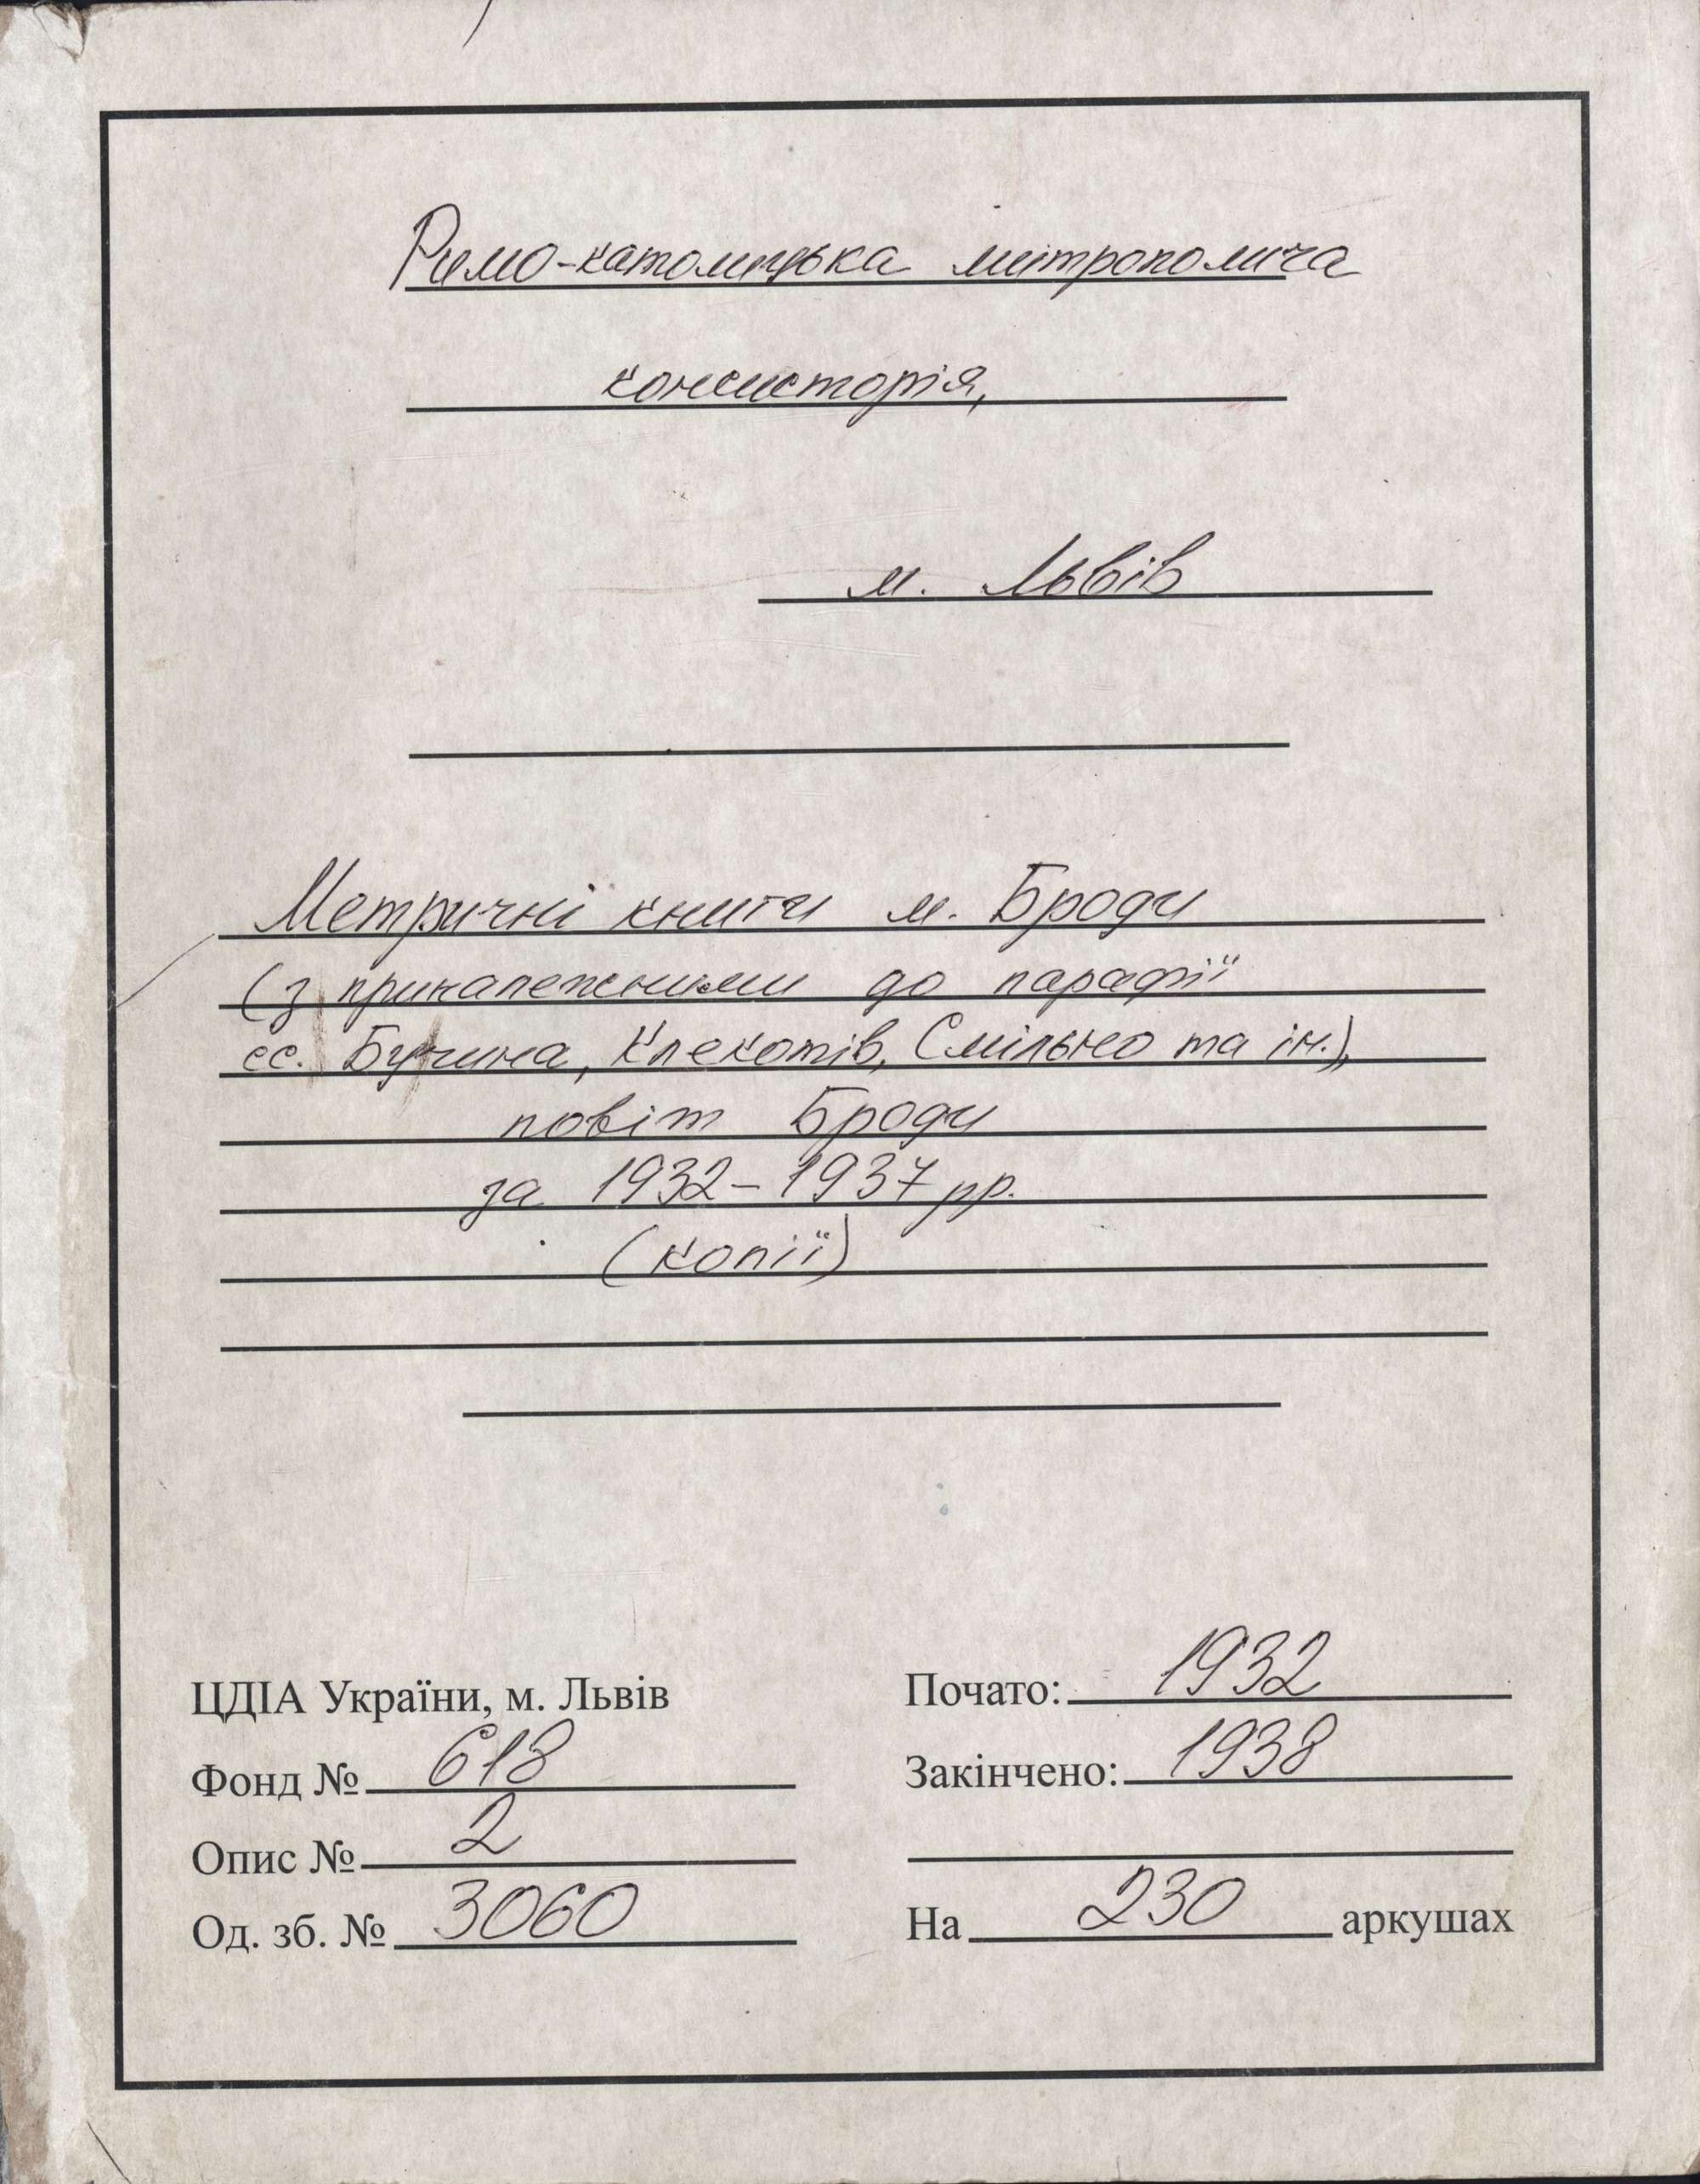 Римо-католицька митрополича
консисторія,
м. Львів
Метричні книги м. Броди
(з приналежними до парафії
сс. Бучина, Клекотів, Смільно та ін.),
повіт Броди
за 1932-1937 рр.
(копії)
ЦДІА України, м. Львів
Фонд № 618
Опис № 2
Од. зб. № 3060
Почато: 1932
Закінчено: 1938
На 230 аркушах